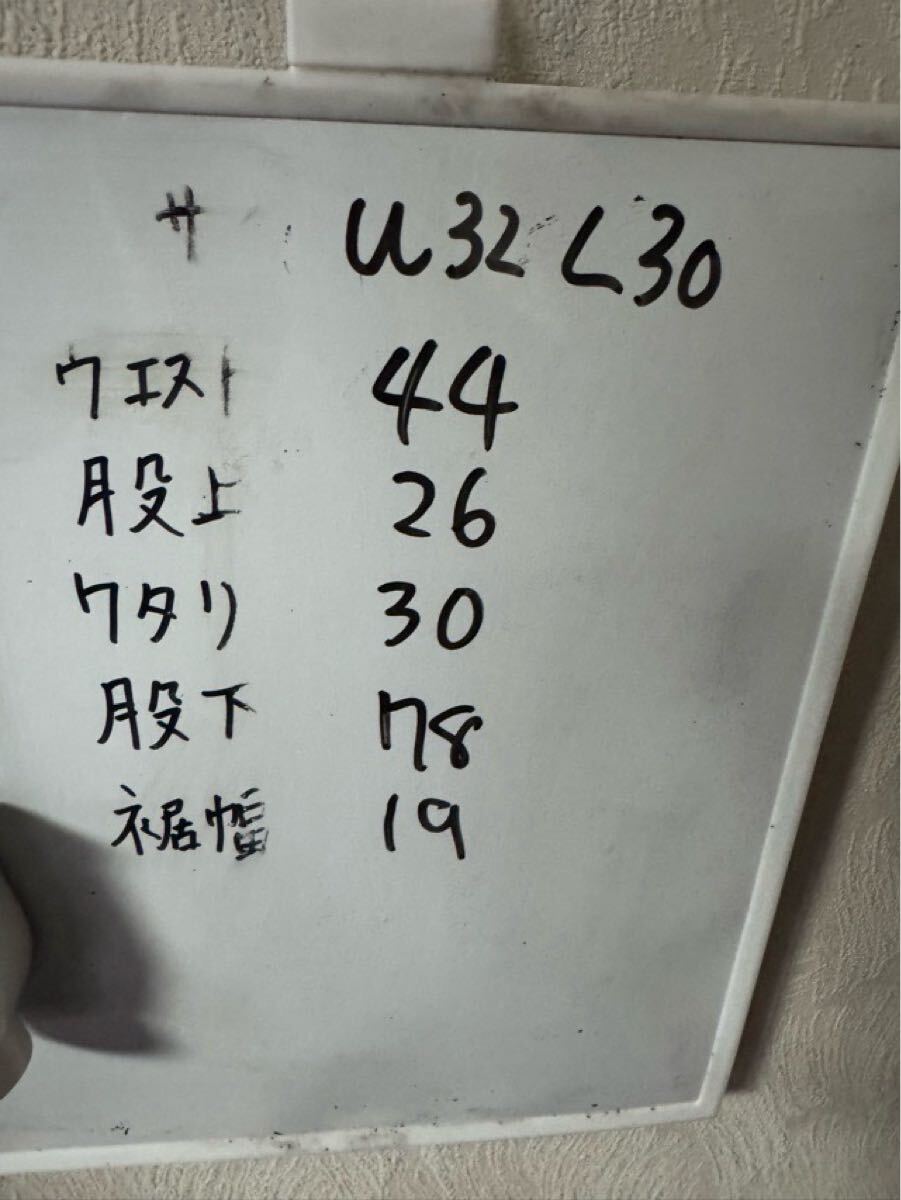 サ W32 L30
ウエスト 44
股上 26
ワタリ 30
股下 78
裾幅 19